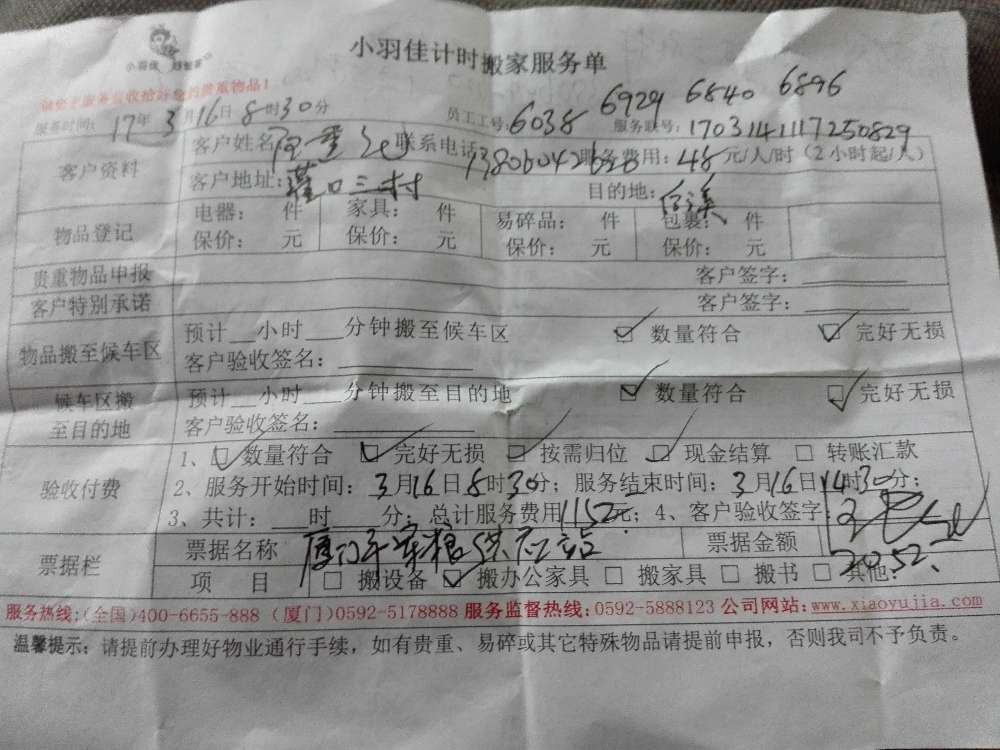 小羽佳计时搬家服务单
小羽佳 好管家
贵重物品！
服务时间：17年3月16日8时30分 员工工号：6038 6929 6840 6896
服务联号：17031411117250829
客户资料 客户姓名： 联系电话：13806042628 服务费用：48元/人/时（2小时起/人）
客户地址：灌口三村 目的地：后溪
物品登记 电器： 件 家具： 件 易碎品： 件 包裹： 件
保价： 元 保价： 元 保价： 元 保价： 元
贵重物品申报 客户签字：
客户特别承诺 客户签字：
物品搬至候车区 预计__小时___分钟搬至候车区 数量符合 完好无损
客户验收签名：
候车区搬至目的地 预计__小时___分钟搬至目的地 数量符合 完好无损
客户验收签名：
验收付费 1、数量符合 完好无损 按需归位 现金结算 转账汇款
2、服务开始时间：3月16日8时30分；服务结束时间：3月16日14时30分；
3、共计：___时___分；总计服务费用1152元；4、客户验收签字：
票据栏 票据名称 厦门市军粮供应站 票据金额 2052.
项目 搬设备 搬办公家具 搬家具 搬书 其他：
服务热线：(全国)400-6655-888 (厦门)0592-5178888 服务监督热线：0592-5888123 公司网站：www.xiaoyujia.com
温馨提示：请提前办理好物业通行手续，如有贵重、易碎或其它特殊物品请提前申报，否则我司不予负责。